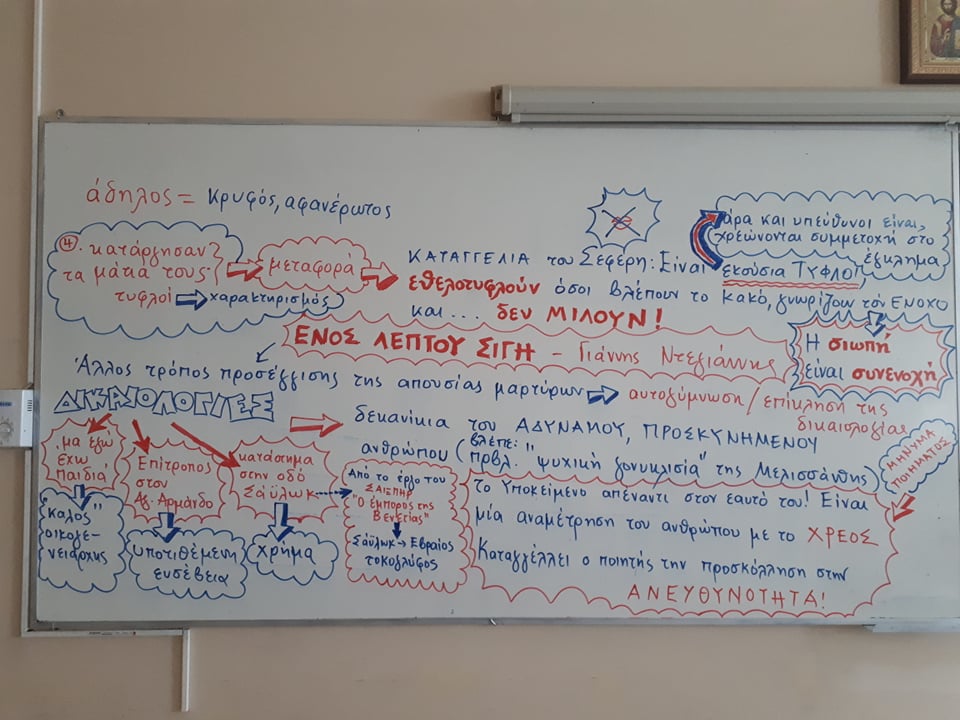 άδηλος = κρυφός, αφανέρωτος
④. κατάργησαν
τα μάτια τους·
τυφλοί ⇨ χαρακτηρισμός
μεταφορά
ΚΑΤΑΓΓΕΛΙΑ του Σεφέρη: Είναι
εκούσια ΤΥΦΛΟΙ,
εθελοτυφλούν όσοι βλέπουν το κακό, γνωρίζουν τον ΕΝΟΧΟ
και... δεν ΜΙΛΟΥΝ!
άρα και υπεύθυνοι είναι,
χρεώνονται συμμετοχή στο
έγκλημα
Η σιωπή
είναι συνενοχή
ΕΝΟΣ ΛΕΠΤΟΥ ΣΙΓΗ - Γιάννης Ντεγιάννης
Άλλος τρόπος προσέγγισης της απουσίας μαρτύρων ⇨ αυτοεξύμνωση / επίκληση της
δικαιολογίας
ΔΙΚΑΙΟΛΟΓΙΕΣ
δεκανίκια του ΑΔΥΝΑΜΟΥ, ΠΡΟΣΚΥΝΗΜΕΝΟΥ
ανθρώπου (βλέπε:
πρβλ. "ψυχική γονυκλισία" της Μελισσάνθης)
μα εγώ
έχω
παιδιά
"καλός"
οικογε-
νειάρχης
Επίτροπος
στον
Αγ. Αρμάνδο
υποτιθέμενη
ευσέβεια
κατάστημα
στην οδό
Σάυλωκ
χρήμα
Από το έργο του
ΣΑΙΞΠΗΡ
"Ο έμπορος της
Βενετίας"
Σάυλωκ → Εβραίος
τοκογλύφος
ΜΗΝΥΜΑ
ΠΟΙΗΜΑΤΟΣ
Το Υποκείμενο απέναντι στον εαυτό του! Είναι
μία αναμέτρηση του ανθρώπου με το ΧΡΕΟΣ
Καταγγέλλει ο ποιητής την προσκόλληση στην
ΑΝΕΥΘΥΝΟΤΗΤΑ!